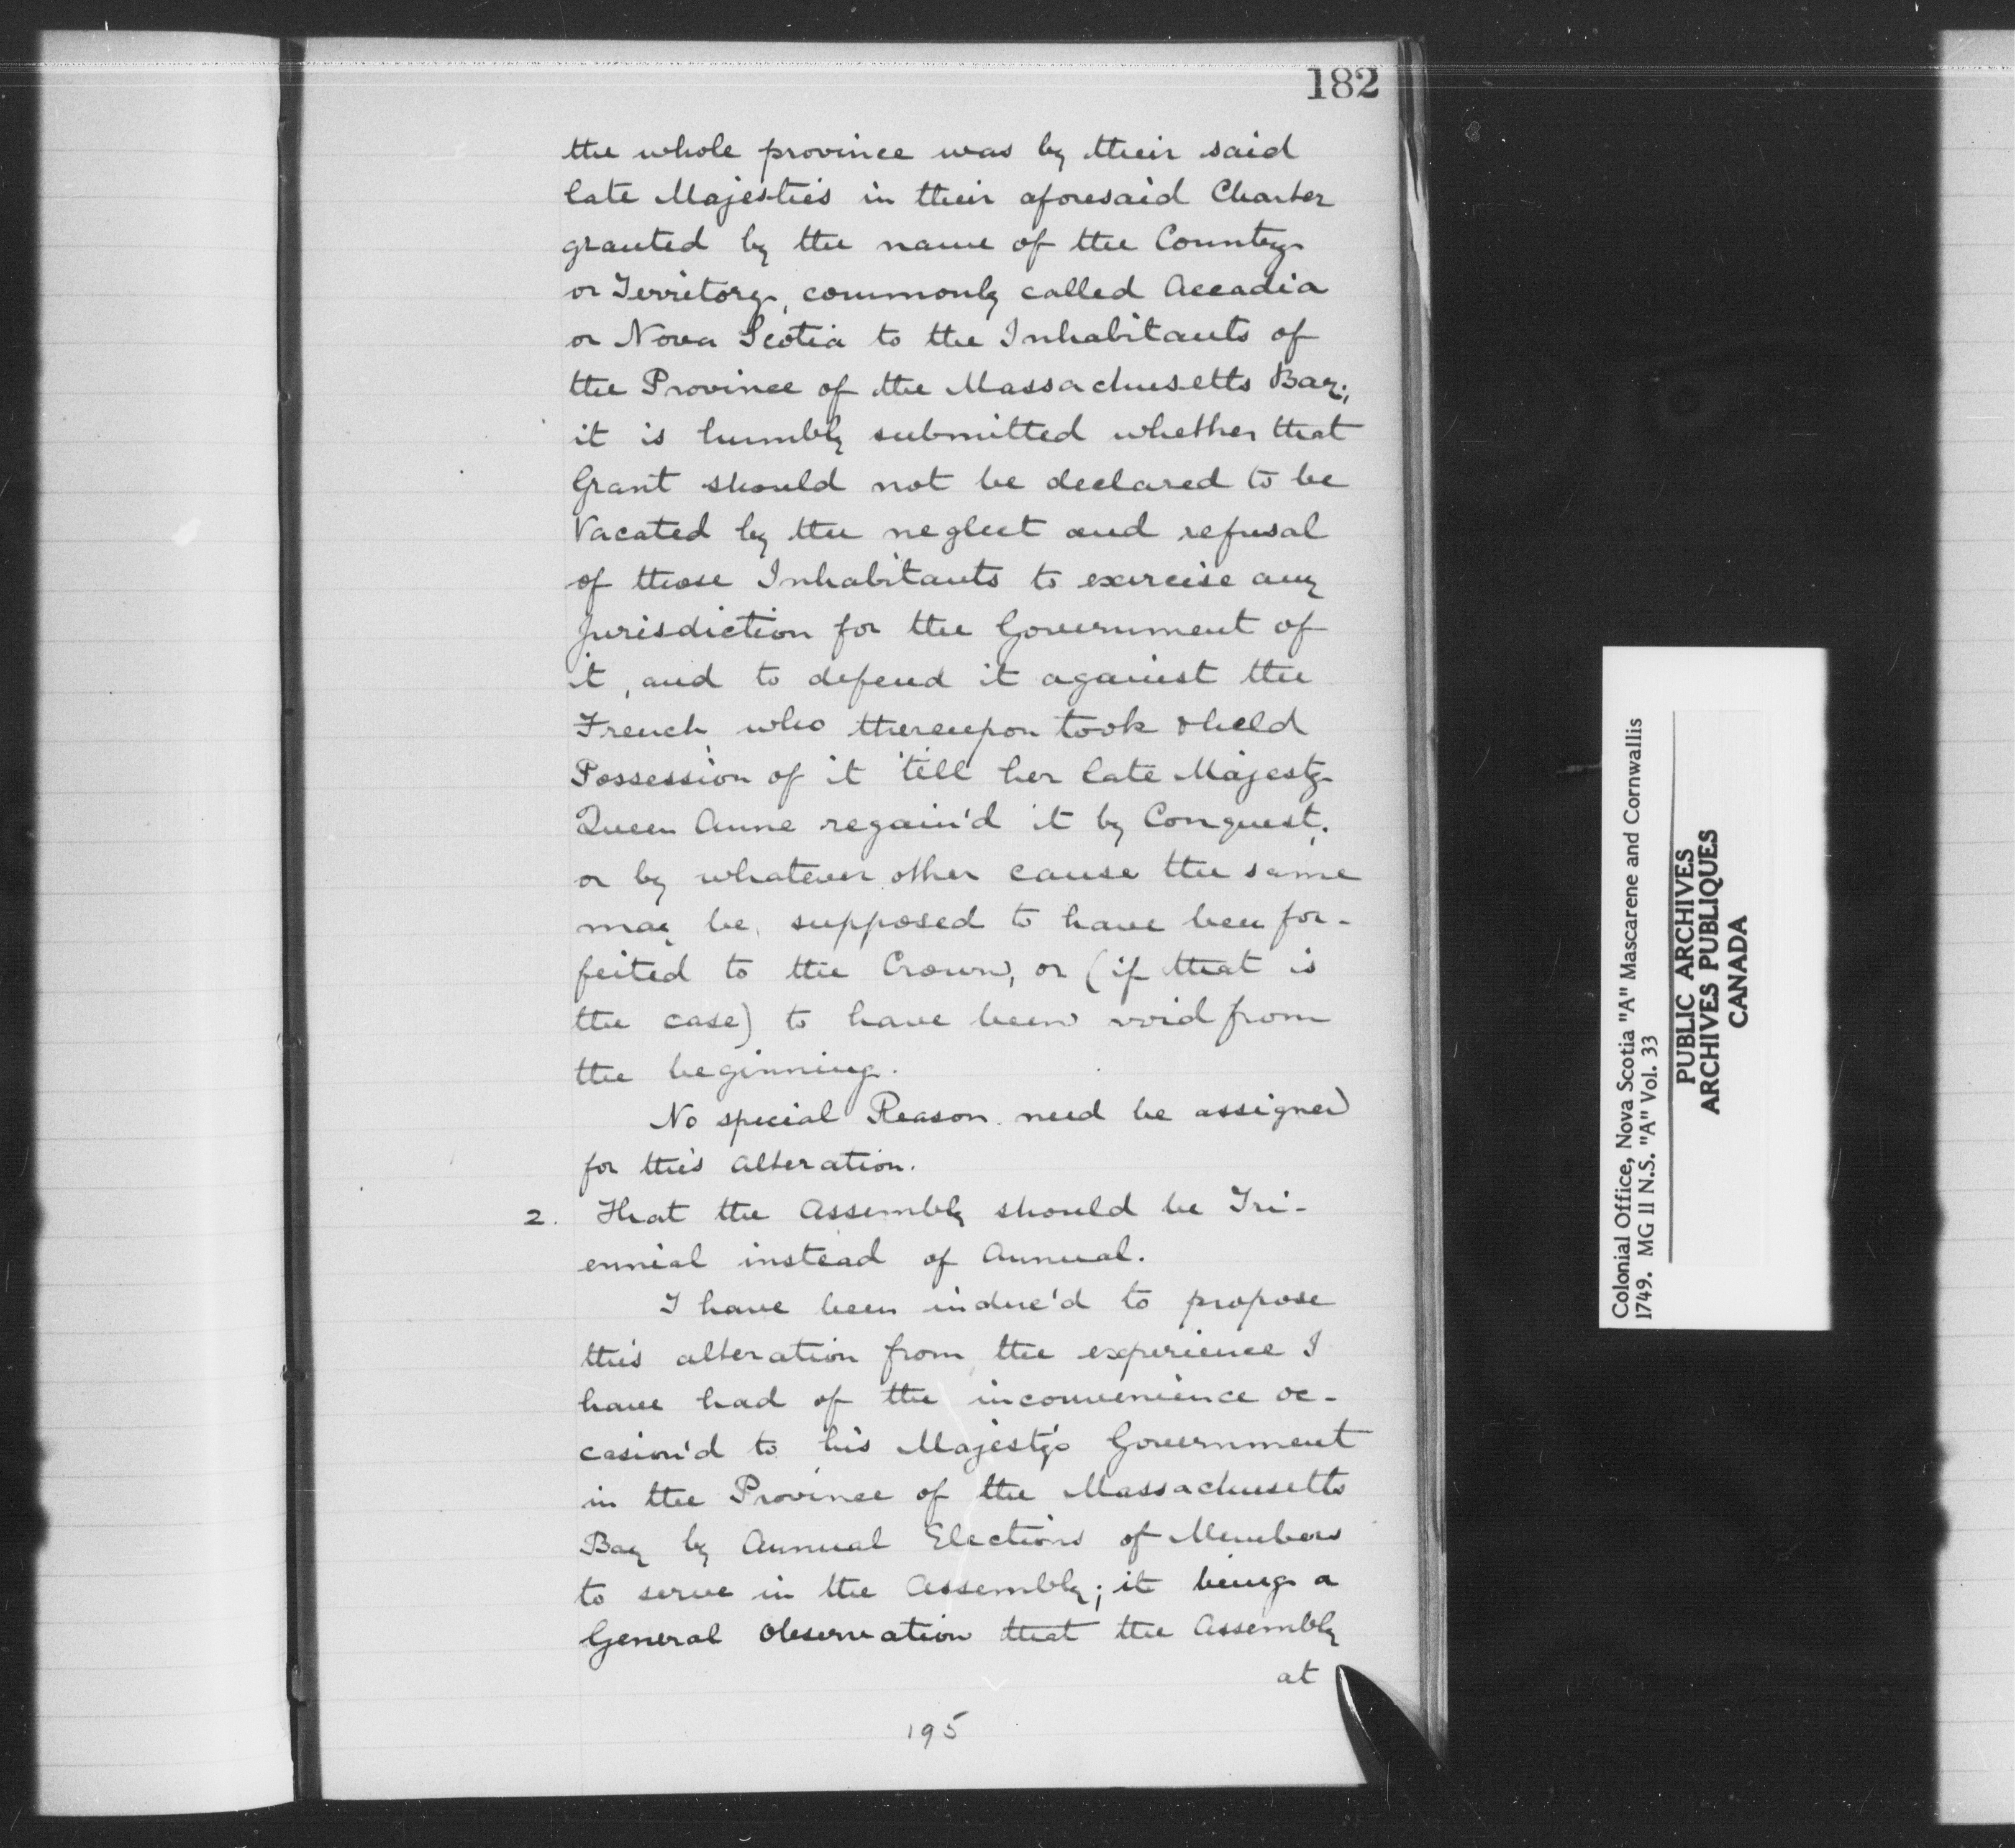 182
the whole province was by their said
late Majesties in their aforesaid Charter
granted by the name of the Country
or Territory, commonly called Accadia
or Nova Scotia to the Inhabitants of
the Province of the Massachusetts Bay;
it is humbly submitted whether that
Grant should not be declared to be
Vacated by the neglect and refusal
of those Inhabitants to exercise any
Jurisdiction for the Government of
it, and to defend it against the
French who thereupon took & held
Possession of it 'till her late Majesty
Queen Anne regain'd it by Conquest,
or by whatever other cause the same
may be, supposed to have been for-
feited to the Crown, or (if that is
the case) to have been void from
the beginning.
No special Reason need be assigned
for this alteration.
2. That the Assembly should be Tri-
ennial instead of Annual.
I have been induc'd to propose
this alteration from the experience I
have had of the inconvenience oc-
casion'd to his Majesty's Government
in the Province of the Massachusetts
Bay by Annual Elections of Members
to serve in the Assembly; it being a
General Observation that the Assembly
at
195
Colonial Office, Nova Scotia "A" Mascarene and Cornwallis
1749. MG 11 N.S. "A" Vol. 33
PUBLIC ARCHIVES
ARCHIVES PUBLIQUES
CANADA